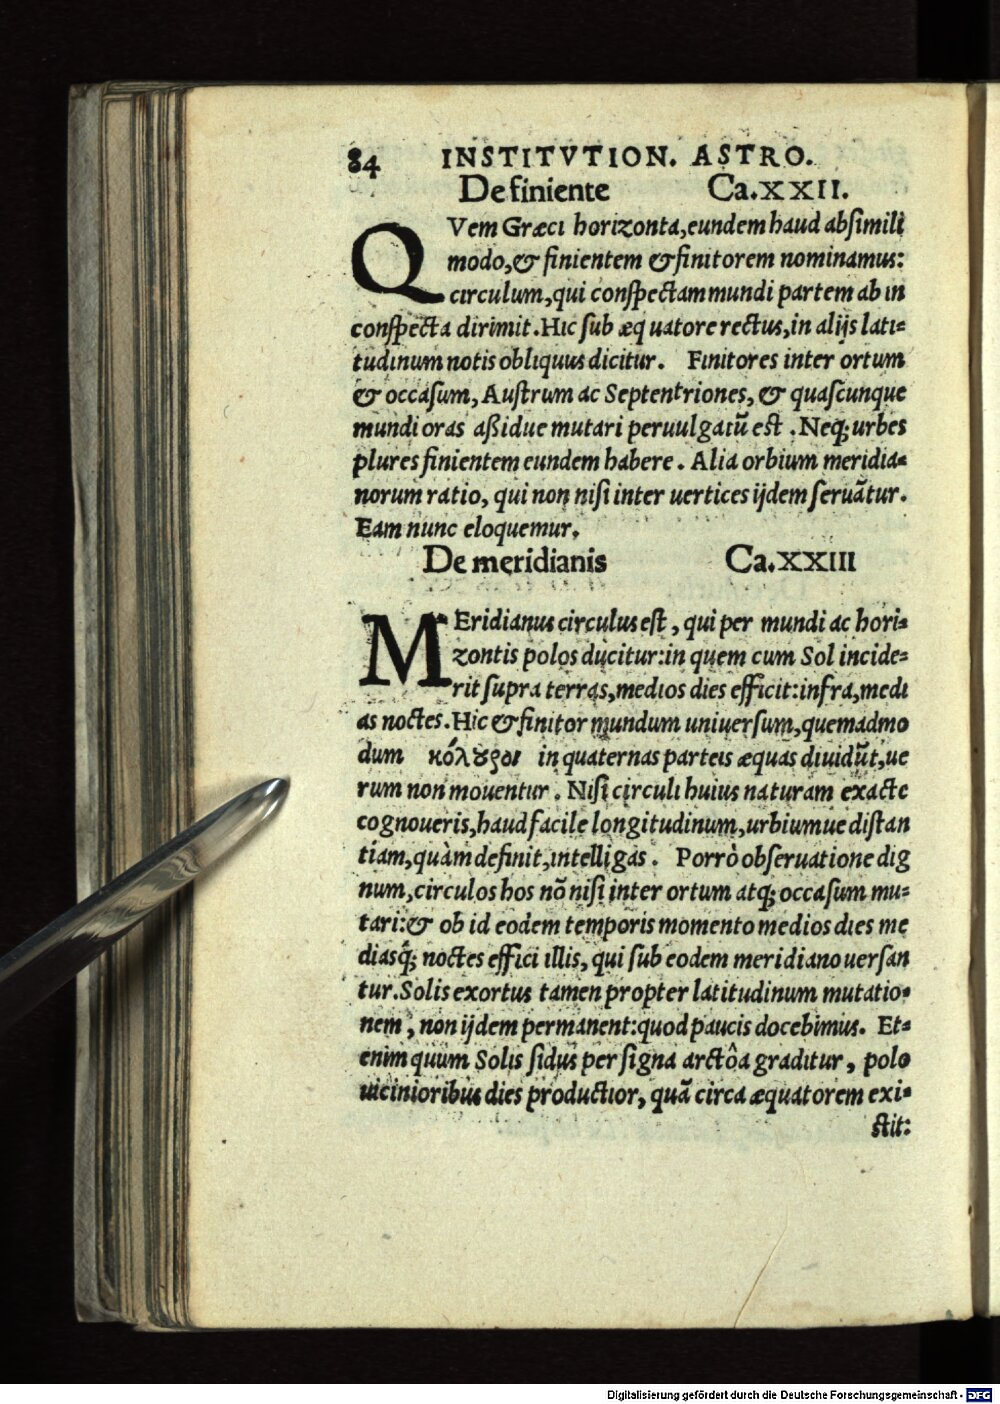 84 INSTITVTION. ASTRO.
De finiente Ca.XXII.
QVem Græci horizonta, eundem haud absimili
modo, & finientem & finitorem nominamus:
circulum, qui conspectam mundi partem ab in
conspecta dirimit. Hic sub æquatore rectus, in alijs lati-
tudinum notis obliquus dicitur. Finitores inter ortum
& occasum, Austrum ac Septentriones, & quascunque
mundi oras aßidue mutari peruulgatũ est. Neq; urbes
plures finientem eundem habere. Alia orbium meridia-
norum ratio, qui non nisi inter uertices ijdem seruãtur.
Eam nunc eloquemur.
De meridianis Ca.XXIII
MEridianus circulus est, qui per mundi ac hori-
zontis polos ducitur: in quem cum Sol incide-
rit supra terras, medios dies efficit: infra, medi
as noctes. Hic & finitor mundum uniuersum, quemadmo
dum κόλουροι in quaternas parteis æquas diuidũt, ue
rum non mouentur. Nisi circuli huius naturam exacte
cognoueris, haud facile longitudinum, urbiumue distan
tiam, quàm definit, intelligas. Porrò obseruatione dig
num, circulos hos nõ nisi inter ortum atq; occasum mu-
tari: & ob id eodem temporis momento medios dies me
diasq́; noctes effici illis, qui sub eodem meridiano uersan
tur. Solis exortus tamen propter latitudinum mutatio-
nem, non ijdem permanent: quod paucis docebimus. Et-
enim quum Solis sidus per signa arctôa graditur, polo
uicinioribus dies productior, quã circa æquatorem exi-
stit:
Digitalisierung gefördert durch die Deutsche Forschungsgemeinschaft - DFG